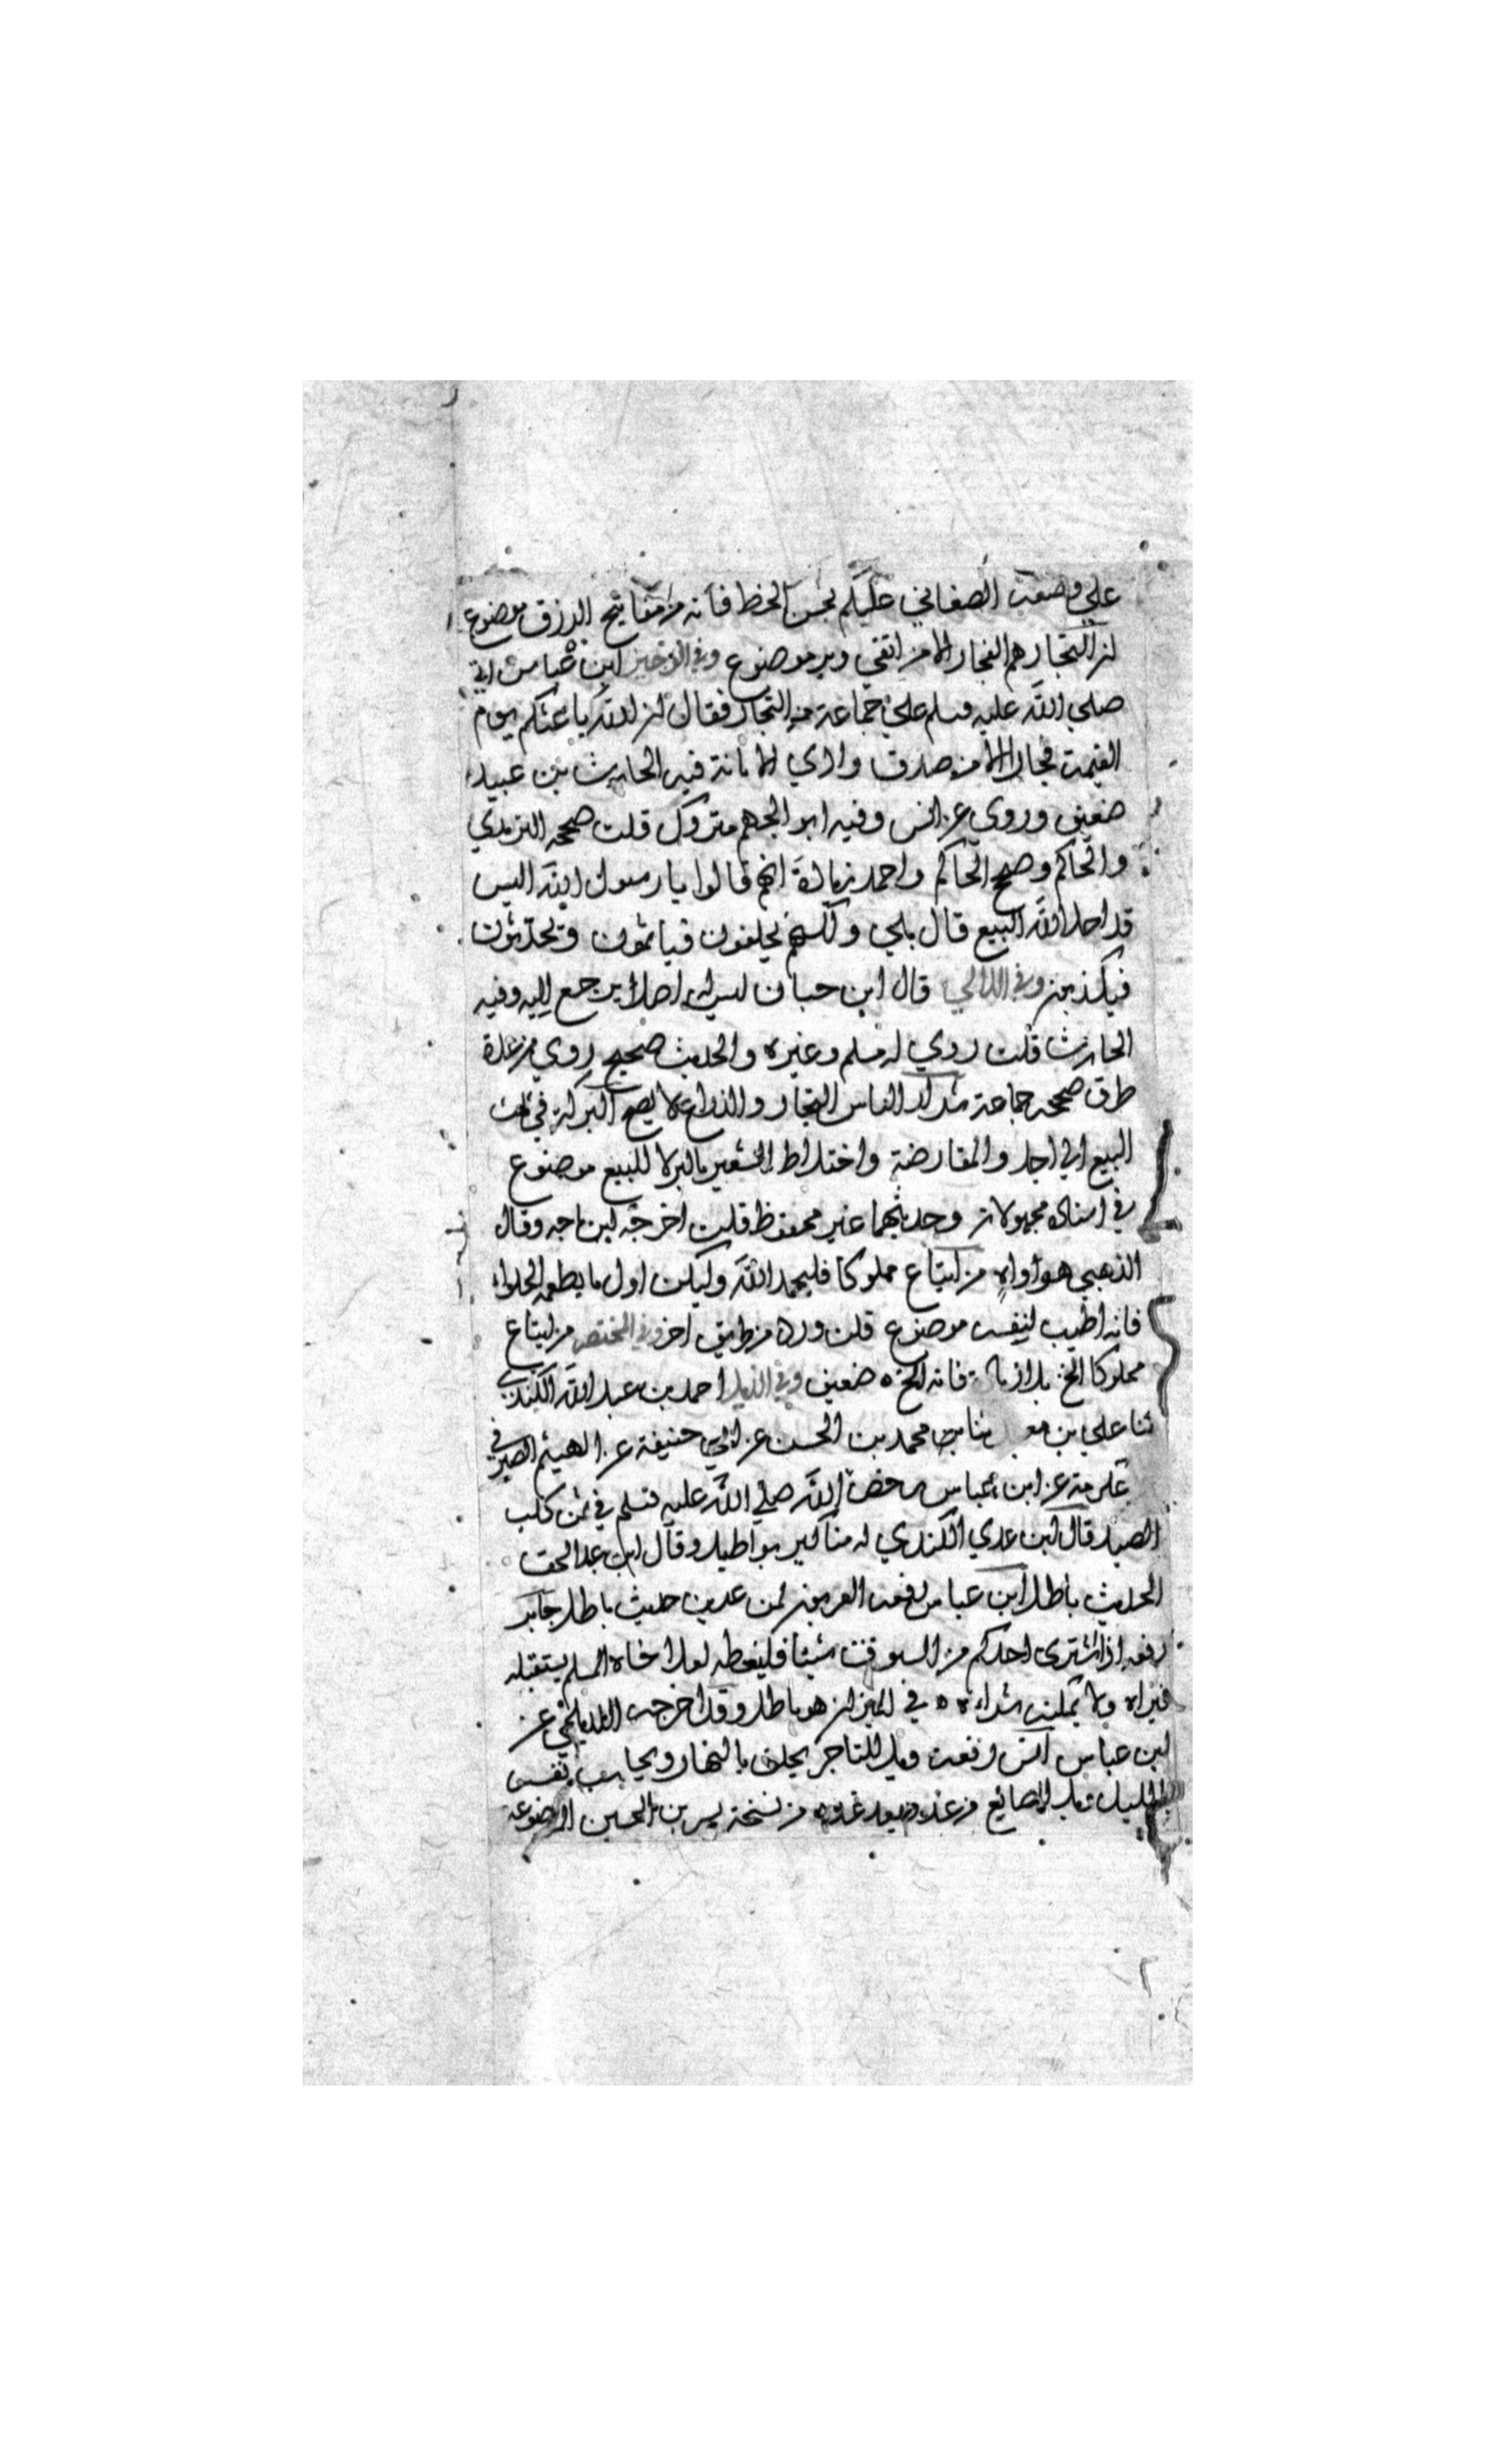 على وضعت الصغاني عليكم بحسن الخط فانه من مفاتيح الرزق موضوع
ان التجار هم الفجار الا من اتقي وبر موضوع وفي الوجيز ابن عباس اتي
صلي الله عليه وسلم علي جماعة من التجار فقال ان الله باعثكم يوم
القيمة فجارا الا من صدق وادي الامانة فيه الحارث بن عبيد
ضعيف وروي عن انس وفيه ابو الجهم متروك قلت صححه الترمذي
والحاكم وصحح الحاكم واحمد زيادة انهم قالوا يا رسول الله اليس
قد احل الله البيع قال بلي ولكنهم يحلفون فياثمون ويحدثون
فيكذبون وفي اللالي قال ابن حبان ليس له اصلا يرجع اليه وفيه
الحارث قلت روي له مسلم وغيره والحديث صحيح روي من عدة
طرق صححه جماعة شرار الناس التجار والزراع لا يصح البركة في ثلث
البيع الي اجل والمقارضة واختلاط الشعير بالبر لا للبيع موضوع
في اسناده مجهولان وحديثهما غير محفوظ قلت اخرجه ابن ماجه وقال
الذهبي هو واه من ابتاع مملوكا فليحمد الله وليكن اول ما يطعمه الحلواء
فانه اطيب لنفسه موضوع قلت ورد من طريق اخر وفي المختصر من ابتاع
مملوكا الخ بلا زيادة فانه الخ ه ضعيف وفي الذيل احمد بن عبد الله الكندي
ثنا علي بن معبد ثنا محمد بن الحسن عن ابي حنيفة عن الهيثم الصيرفي
عكرمة عن ابن عباس رخص الله صلي الله عليه وسلم في ثمن كلب
الصيد قال ابن عدي الكندي له مناكير بواطيل وقال ابن عبد الحق
الحديث باطل ابن عباس رفعه العربون لمن عربن حديث باطل جابر
رفعه اذا اشتري احدكم من السوق شيئا فليغطه لعل اخاه المسلم يستقبله
فيراه ولا يمكنه شراءه ه في الميزان هو باطل وقد اخرجه الديلمي عن
ابن عباس انس رفعه ويل للتاجر يحلف بالنهار ويحاسب نفسه
بالليل ويل للصانع من غد وبعد غد ه من نسخة بشر بن الحسين الموضوعة